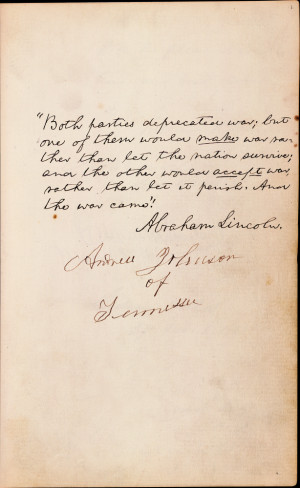 "Both parties deprecated war; but
one of them would make war ra-
ther than let the nation survive;
and the other would accept war
rather than let it perish. And
the war came."
Abraham Lincoln.
Andrew Johnson
of
Tennessee